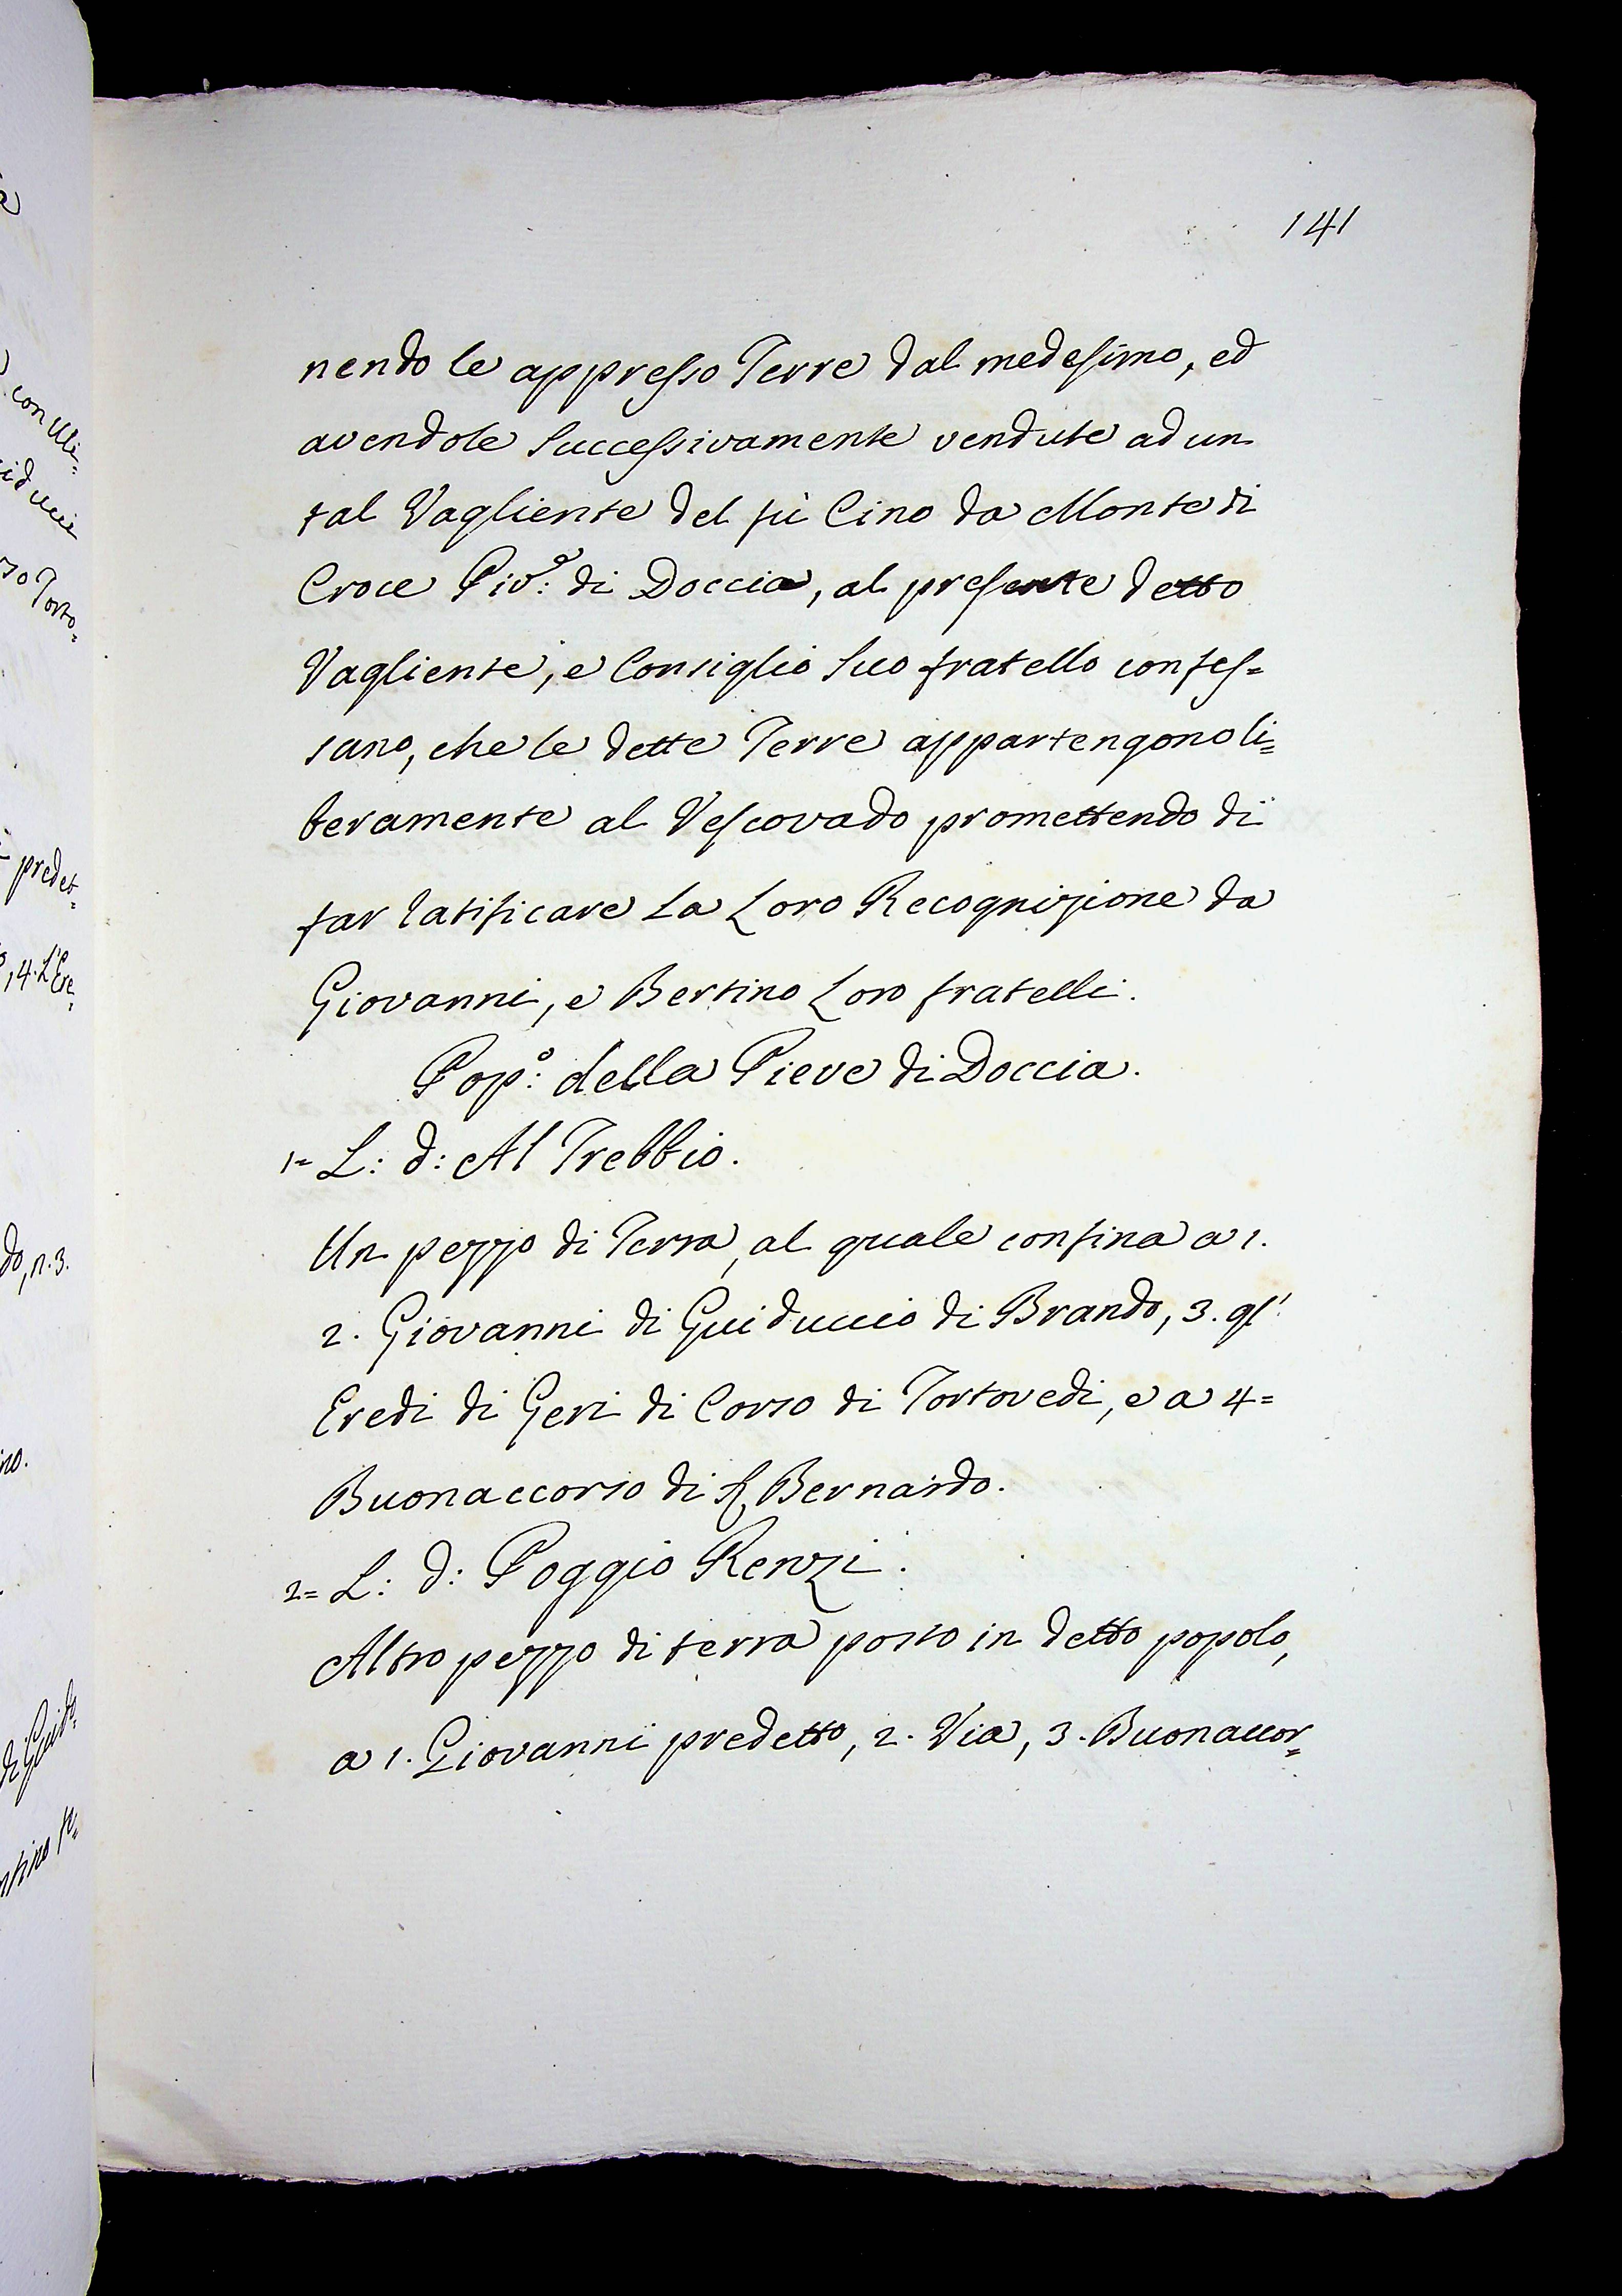 141
nendo le appresso Terre dal medesimo, ed
avendole Successivamente vendute ad un
tal Vagliente del fù Cino da Monte di
Croce Piv:º di Doccia, al presente detto
Vagliente, e Consiglio Suo fratello confes=
sano, che le dette Terre appartengono li=
beramente al Vescovado promettendo di
far ratificare La Loro Recognizione da
Giovanni, e Bertino Loro fratelli.
Pop:º della Pieve di Doccia.
1= L: d: Al Trebbio.
Un pezzo di Terra, al quale confina a 1.
2. Giovanni di Guiduccio di Brando, 3. gl'
Eredi di Geri di Corso di Tortovedi, e a 4=
Buonaccorso di Bernardo.
2= L: d: Poggio Renzi.
Altro pezzo di terra posto in detto popolo,
a 1. Giovanni predetto, 2. Via, 3. Buonaccor=
con Uli=
Torto=
predet=
, 4. L'Ere=
do, n. 3.